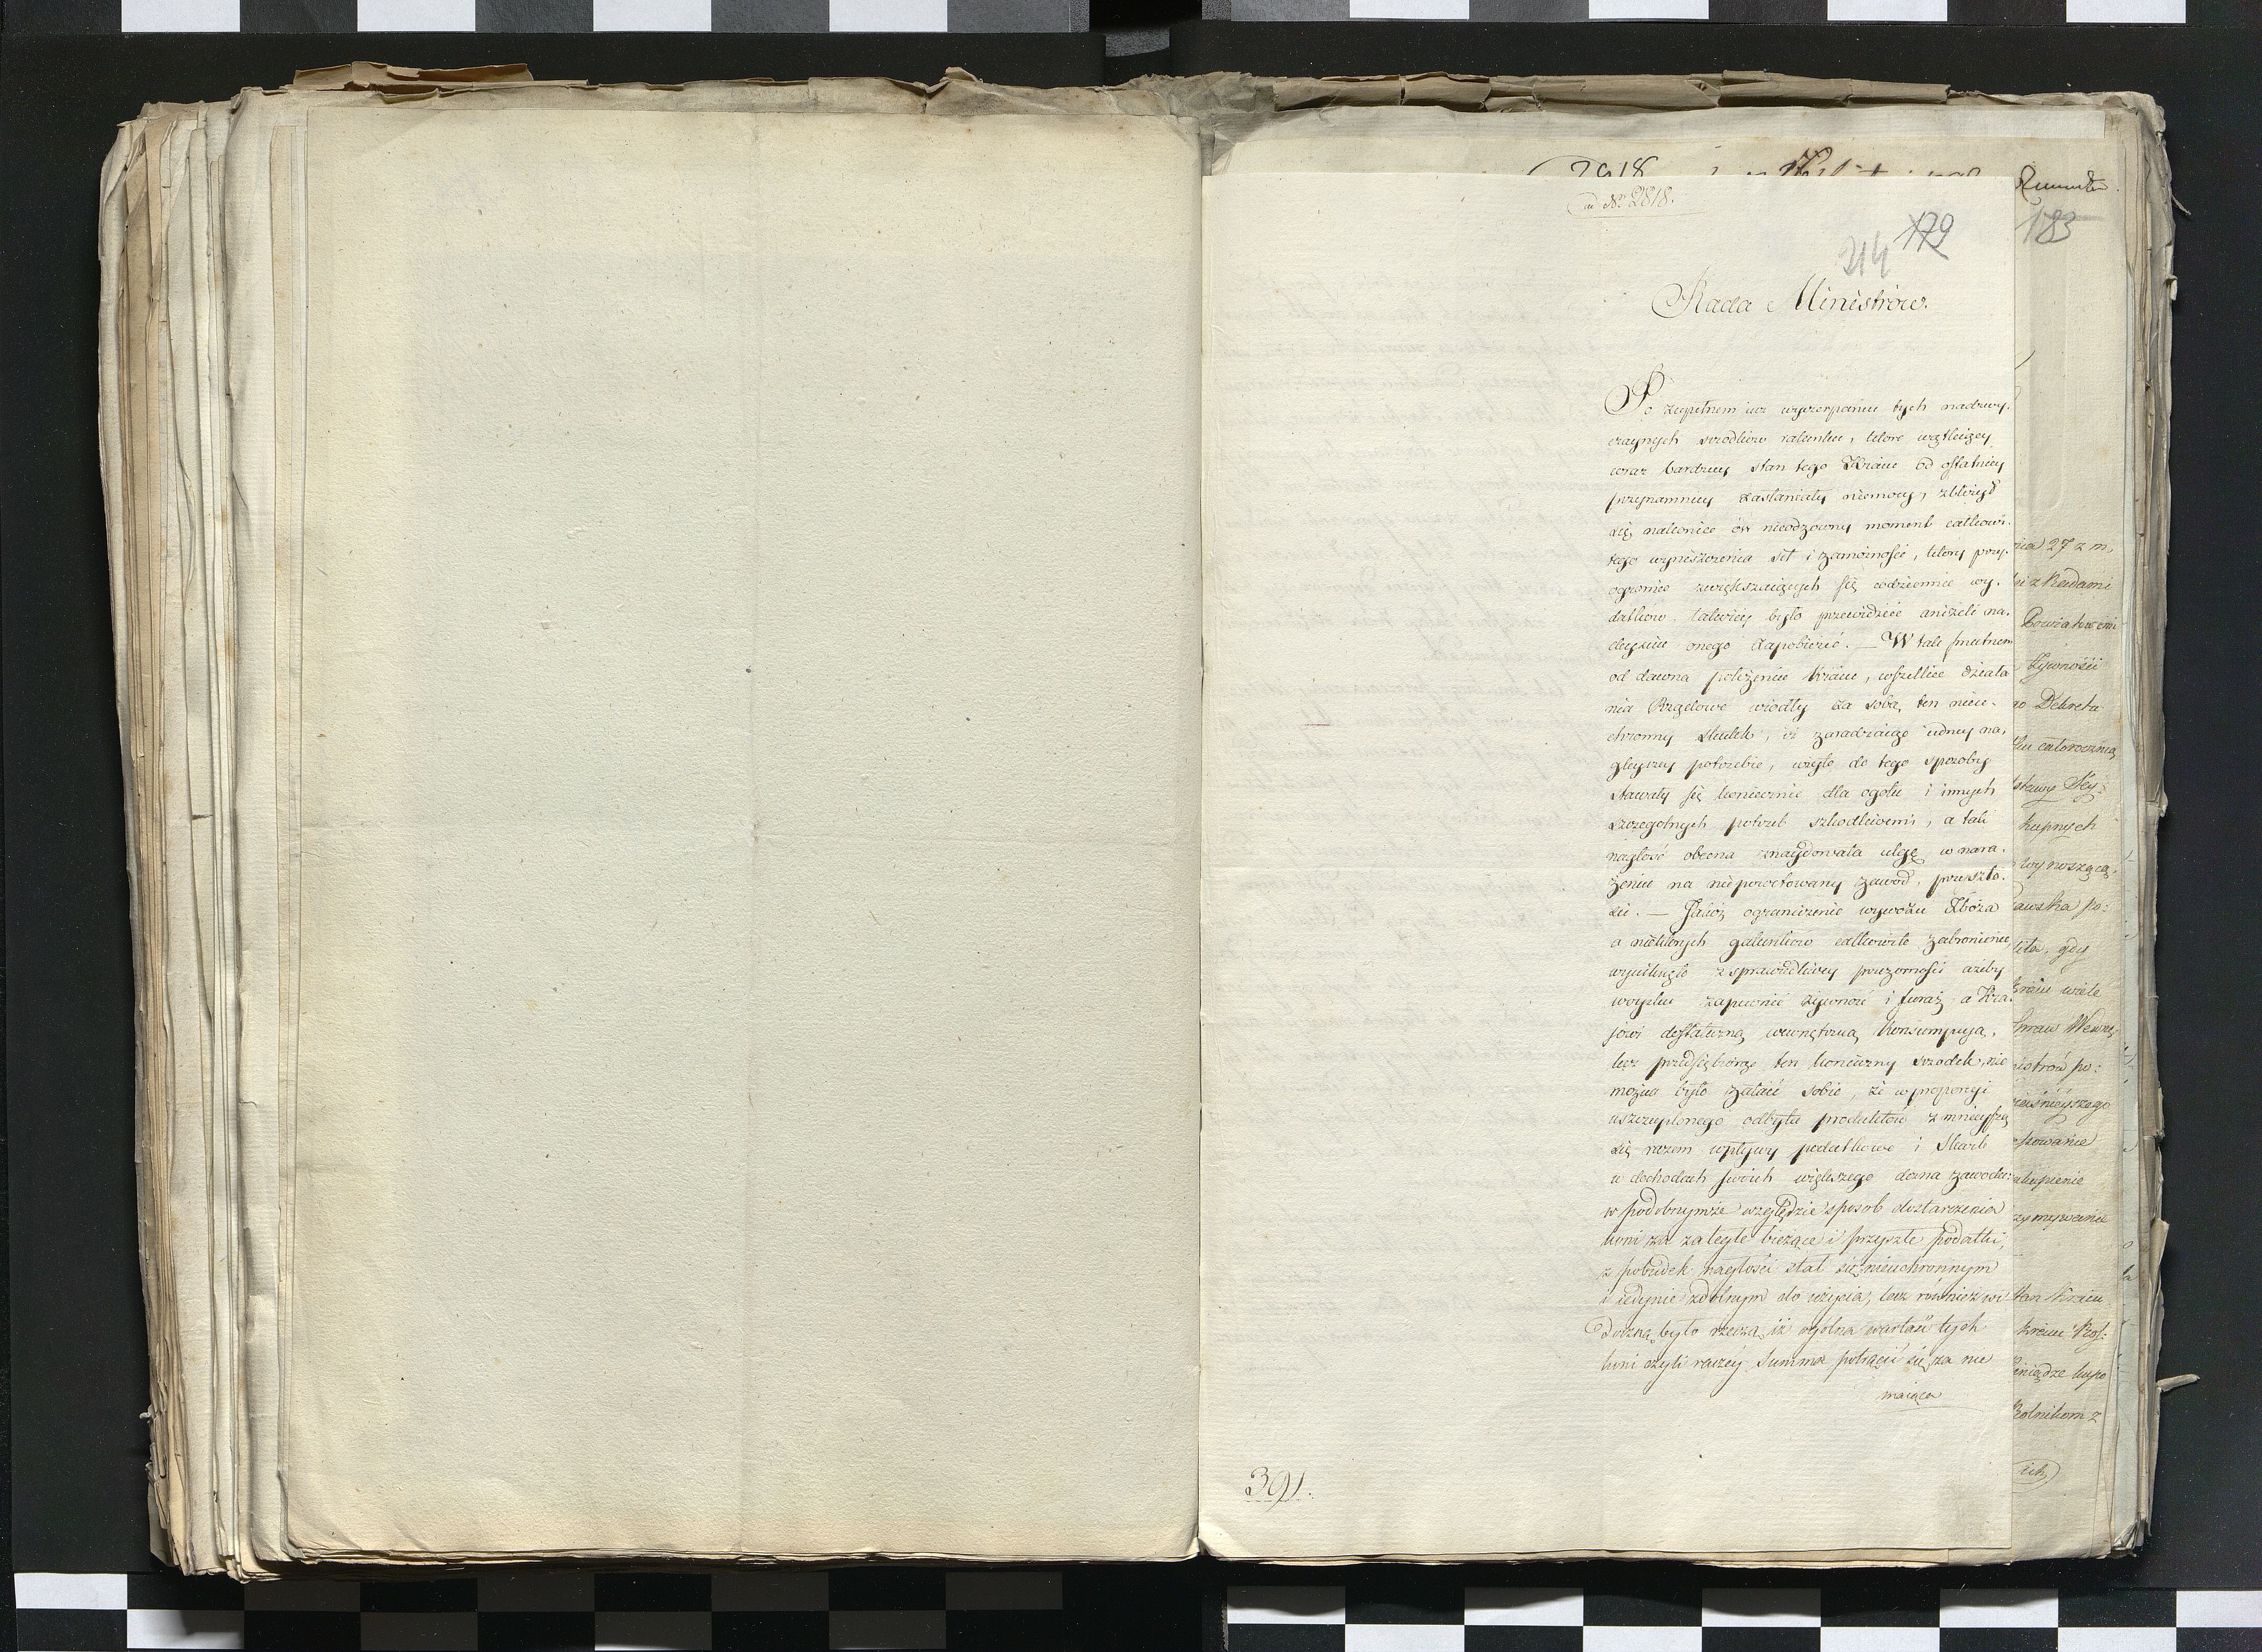 ad No 2818.
179
214
183
Rada Ministrów.
Po zupełnem iuż wyczerpaniu tych nadzwy-
czaynych srzodkow ratunku, ktore wątleiący
coraz bardziey stan tego Kraiu od ostatniey
przynamniey zasłaniały niemocy, zbliżył
się nakoniec ów nieodzowny moment całkowi-
tego wyniszczenia sił i zamożności, ktory przy
ogromie zwiększaiących się codziennie wy-
datkow łatwiey było przewidzieć aniżeli na-
deyściu onego zapobiedz. — W tak smutnem
od dawna położeniu Kraiu, wszelkie działa
nia Rządowe wiodły za sobą ten nieu-
chronny skutek, iż zaradzaiąc iedney na-
gleyszey potrzebie, wzięte do tego sposoby
stawały się koniecznie dla ogołu i innych
szczegolnych potrzeb szkodliwemi, a tak
nagłość obecna znaydowała ulgę w nara-
żeniu na niepowetowany zawod przyszło-
ści. — Jakoż ograniczenie wywozu Zboża
a niektorych gatunkow całkowite zabronienie,
wyniknęło z sprawiedliwey przezorności ażeby
woysku zapewnić żywność i furaż a Kra-
jowi dostateczną wewnętrzną konsumpcyą,
lecz przedsiębiorąc ten konieczny srzodek, nie
można było zataić sobie, że w proporcyi
uszczuplonego odbytu produktów zmnieyszą
się razem wpływy podatkowe i Skarb
w dochodach swoich większego dozna zawodu:
w podobnymże względzie sposob dostarczenia
koni za zaległe bieżące i przyszłe podatki,
z pobudek nagłości stał się nieuchronnym
i iedynie zdolnym do użycia, lecz również wi
doczną było rzeczą, iż ogolna wartość tych
koni czyli raczey summa potrącić się za nie
maiąca
391.
27 z m.
z Radami
Powiatowemi
Żywności
Dekretu
całoroczną
kupnych
wynoszącą
gdy
Kraiu wiele
Spraw Wewnę-